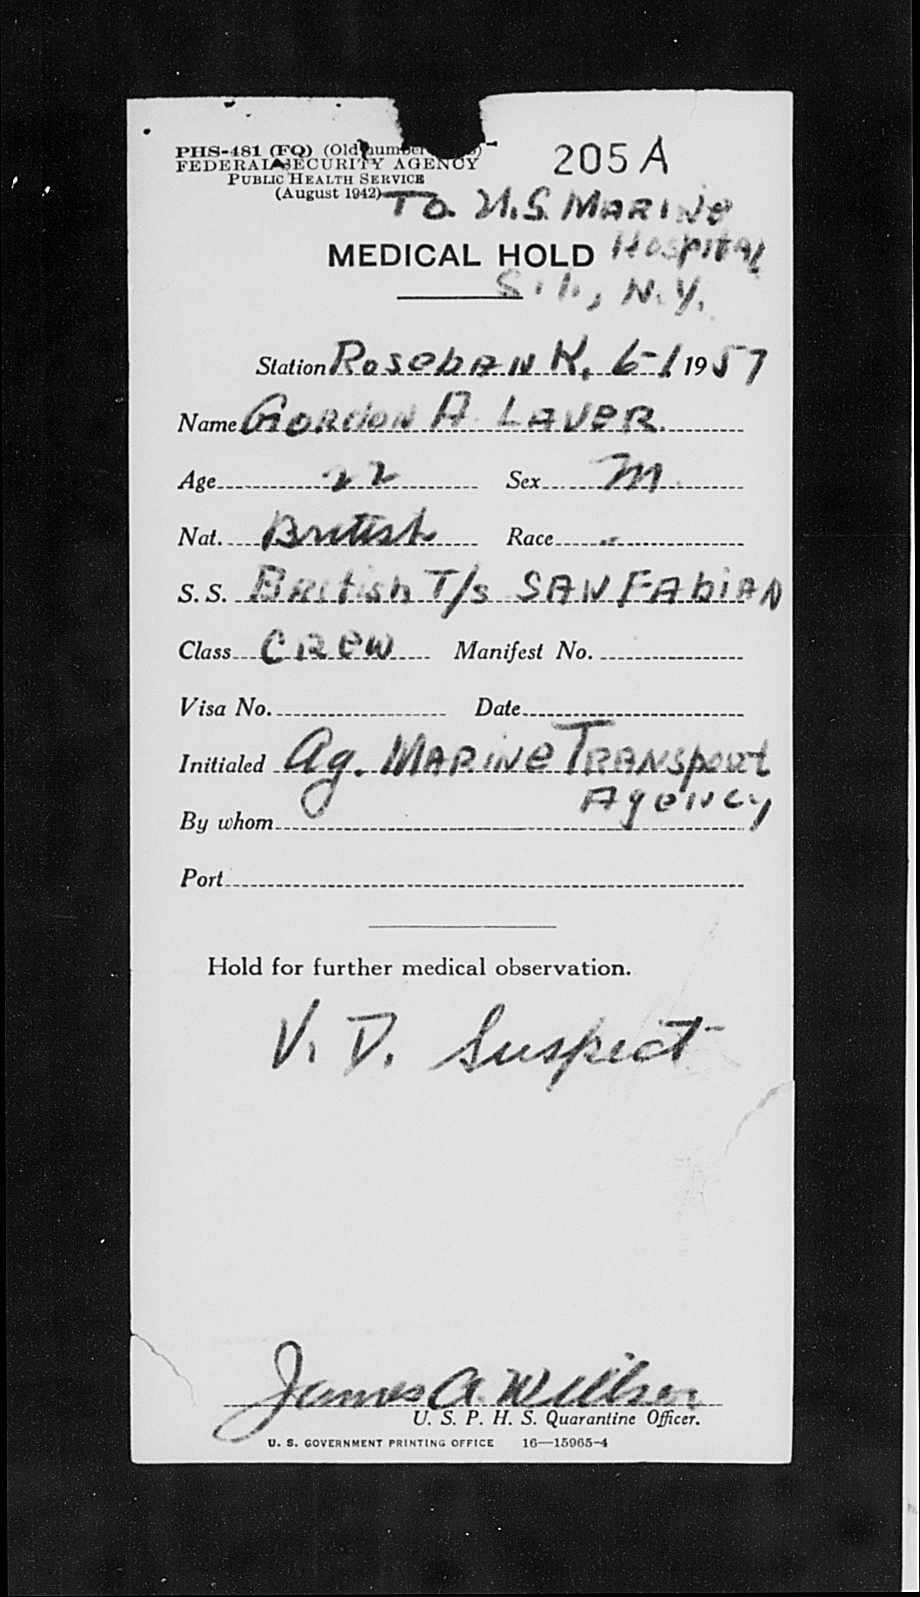 PHS-481 (FQ) (Old number
FEDERAL SECURITY AGENCY
PUBLIC HEALTH SERVICE
(August 1942)
205 A
To U.S. MARINE
Hospital
S.I., N.Y.
MEDICAL HOLD
Station RosebanK. 6-1 1957
Name GORDON A. LAVER.
Age 22 Sex M.
Nat. British Race -
S. S. British T/s SAN FAbiAN
Class CREW Manifest No.
Visa No. Date
Initialed Ag. MARINE TRANSport
Agency
By whom
Port
Hold for further medical observation.
V. D. Suspect
James A. Willson
U. S. P. H. S. Quarantine Officer.
U. S. GOVERNMENT PRINTING OFFICE 16—15965-4